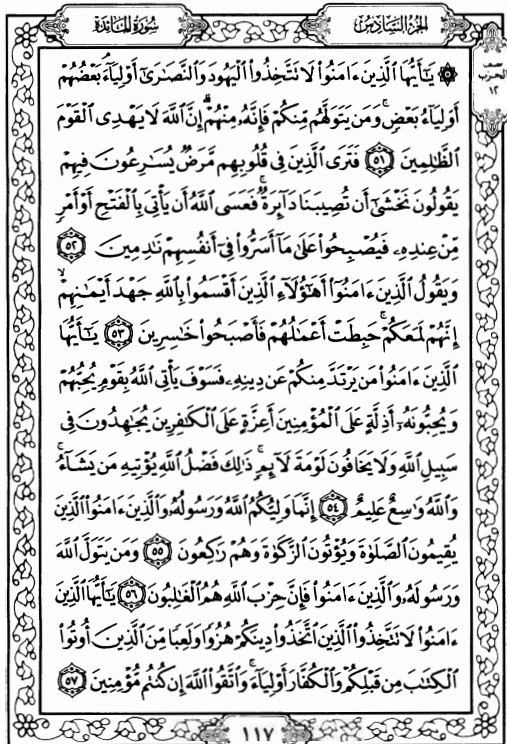 سُورَةُ المَائدة
الجُزءُ السَّادِسُ
نصف
الحزب
١٢
۞ يَٰٓأَيُّهَا ٱلَّذِينَ ءَامَنُوا۟ لَا تَتَّخِذُوا۟ ٱلْيَهُودَ وَٱلنَّصَٰرَىٰٓ أَوْلِيَآءَ ۘ بَعْضُهُمْ
أَوْلِيَآءُ بَعْضٍ ۚ وَمَن يَتَوَلَّهُم مِّنكُمْ فَإِنَّهُۥ مِنْهُمْ ۗ إِنَّ ٱللَّهَ لَا يَهْدِى ٱلْقَوْمَ
ٱلظَّٰلِمِينَ ٥١ فَتَرَى ٱلَّذِينَ فِى قُلُوبِهِم مَّرَضٌ يُسَٰرِعُونَ فِيهِمْ
يَقُولُونَ نَخْشَىٰٓ أَن تُصِيبَنَا دَآئِرَةٌ ۚ فَعَسَى ٱللَّهُ أَن يَأْتِىَ بِٱلْفَتْحِ أَوْ أَمْرٍ
مِّنْ عِندِهِۦ فَيُصْبِحُوا۟ عَلَىٰ مَآ أَسَرُّوا۟ فِىٓ أَنفُسِهِمْ نَٰدِمِينَ ٥٢
وَيَقُولُ ٱلَّذِينَ ءَامَنُوٓا۟ أَهَٰٓؤُلَآءِ ٱلَّذِينَ أَقْسَمُوا۟ بِٱللَّهِ جَهْدَ أَيْمَٰنِهِمْ ۙ
إِنَّهُمْ لَمَعَكُمْ ۚ حَبِطَتْ أَعْمَٰلُهُمْ فَأَصْبَحُوا۟ خَٰسِرِينَ ٥٣ يَٰٓأَيُّهَا
ٱلَّذِينَ ءَامَنُوا۟ مَن يَرْتَدَّ مِنكُمْ عَن دِينِهِۦ فَسَوْفَ يَأْتِى ٱللَّهُ بِقَوْمٍ يُحِبُّهُمْ
وَيُحِبُّونَهُۥٓ أَذِلَّةٍ عَلَى ٱلْمُؤْمِنِينَ أَعِزَّةٍ عَلَى ٱلْكَٰفِرِينَ يُجَٰهِدُونَ فِى
سَبِيلِ ٱللَّهِ وَلَا يَخَافُونَ لَوْمَةَ لَآئِمٍ ۚ ذَٰلِكَ فَضْلُ ٱللَّهِ يُؤْتِيهِ مَن يَشَآءُ ۚ
وَٱللَّهُ وَٰسِعٌ عَلِيمٌ ٥٤ إِنَّمَا وَلِيُّكُمُ ٱللَّهُ وَرَسُولُهُۥ وَٱلَّذِينَ ءَامَنُوا۟ ٱلَّذِينَ
يُقِيمُونَ ٱلصَّلَوٰةَ وَيُؤْتُونَ ٱلزَّكَوٰةَ وَهُمْ رَٰكِعُونَ ٥٥ وَمَن يَتَوَلَّ ٱللَّهَ
وَرَسُولَهُۥ وَٱلَّذِينَ ءَامَنُوا۟ فَإِنَّ حِزْبَ ٱللَّهِ هُمُ ٱلْغَٰلِبُونَ ٥٦ يَٰٓأَيُّهَا ٱلَّذِينَ
ءَامَنُوا۟ لَا تَتَّخِذُوا۟ ٱلَّذِينَ ٱتَّخَذُوا۟ دِينَكُمْ هُزُوًا وَلَعِبًا مِّنَ ٱلَّذِينَ أُوتُوا۟
ٱلْكِتَٰبَ مِن قَبْلِكُمْ وَٱلْكُفَّارَ أَوْلِيَآءَ ۚ وَٱتَّقُوا۟ ٱللَّهَ إِن كُنتُم مُّؤْمِنِينَ ٥٧
١١٧